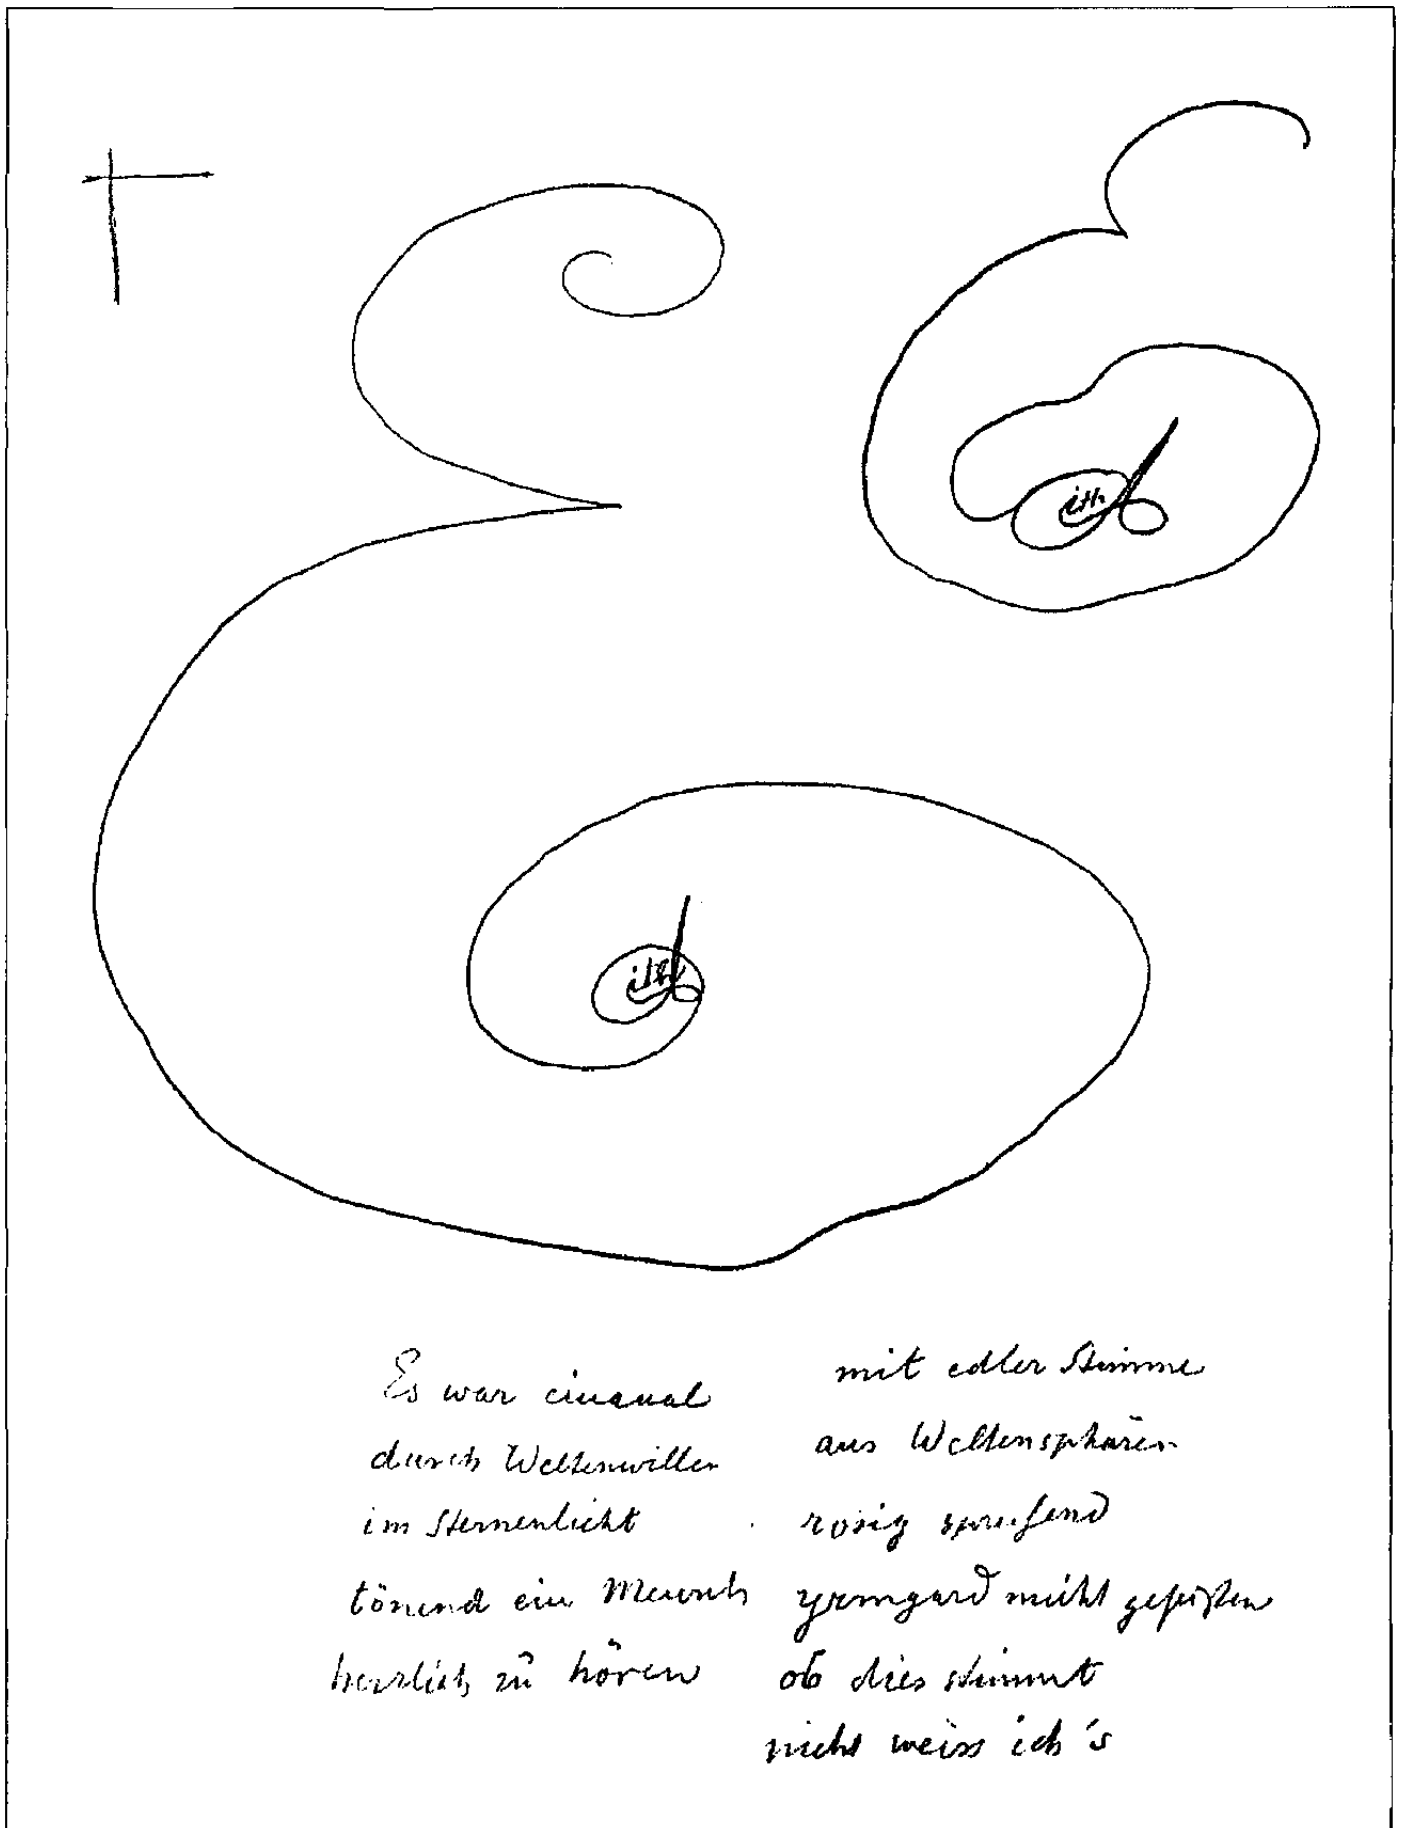 E
E
ith
Es war einmal
durch Weltenwillen
im Sternenlicht
tönend ein Mensch
herrlich zu hören
mit edler Stimme
aus Weltensphären
rosig
yrmgard nicht
ob dies stimmt
nicht weiss ich's